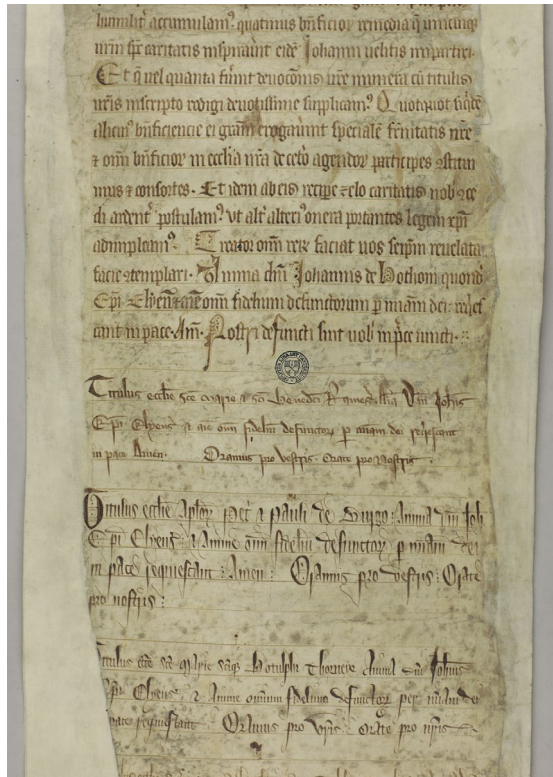 humilit accumulam⁹. quatinus bn̄ficior remedia q̄ unicuiq
urm̄ spc̄ caritatis inspirau̇nt eidē Johanni uelitis impartiri.
Et q̄ uel quanta fu̇int deuoc̄onis ur̄e munera cū titulis
ur̄is inscripto redigi deuotissime supplicam⁹. Quotquot siq̄dē
alicui⁹ bn̄ficiencie ei gr̄am erogau̇int specialē fr̄nitatis nr̄e
⁊ om̄ bn̄ficior in ecclīa nr̄a de cet̄o agendor participes ꝯstitui
mus ⁊ consortes. Et idem ab eis recipe ⁊ elo caritatis nob ꝯce
di ardent̄ postulam⁹. ut alt̄ alteri⁹ onera portantes legem xp̄i
adimpleam⁹. Creator om̄ rer̄ faciat uos seip̄m reuelata
facie ꝯtemplari. Anima dn̄i Johannis de Hothom quond
Ep̄i Elyen̄ ⁊ aīe om̄ fidelium defunctorum p mīam dei reqi̇es
cant in pace. Am̄. Nostri defuncti sint uob in p̄ce uniti.
Titulus ecclīe sc̄e Marie ⁊ sc̄i Benedc̄i Rameseẏ. Aīa dn̄i Joh̄is
Ep̄i Elyens̄ ⁊ aīe om̄ fidelīu defunctor p mīam dei reqi̇escant
in pace Amen. Oramus pro vestris. Orate pro nostris.
Titulus ecclīe Ap̄lor̄ Pet̄i ⁊ Pauli de Burgo. Anima dn̄i Joh̄
Ep̄i Elyens̄ ⁊ Anime om̄ fidelīu defunctor p mīam dei
in pace requiescant. Amen. Oramus pro vestris: Orate
pro nostris:
Titulus ecc̄e sc̄e Marie sc̄iq̄ Botulphi Thorneye Anima dn̄i Joh̄is
Ep̄i Elyens̄ ⁊ Anime omnium fidelium defunctor per mīam dei
pace requiescant. Oramus pro vr̄is. Orate pro nr̄is.